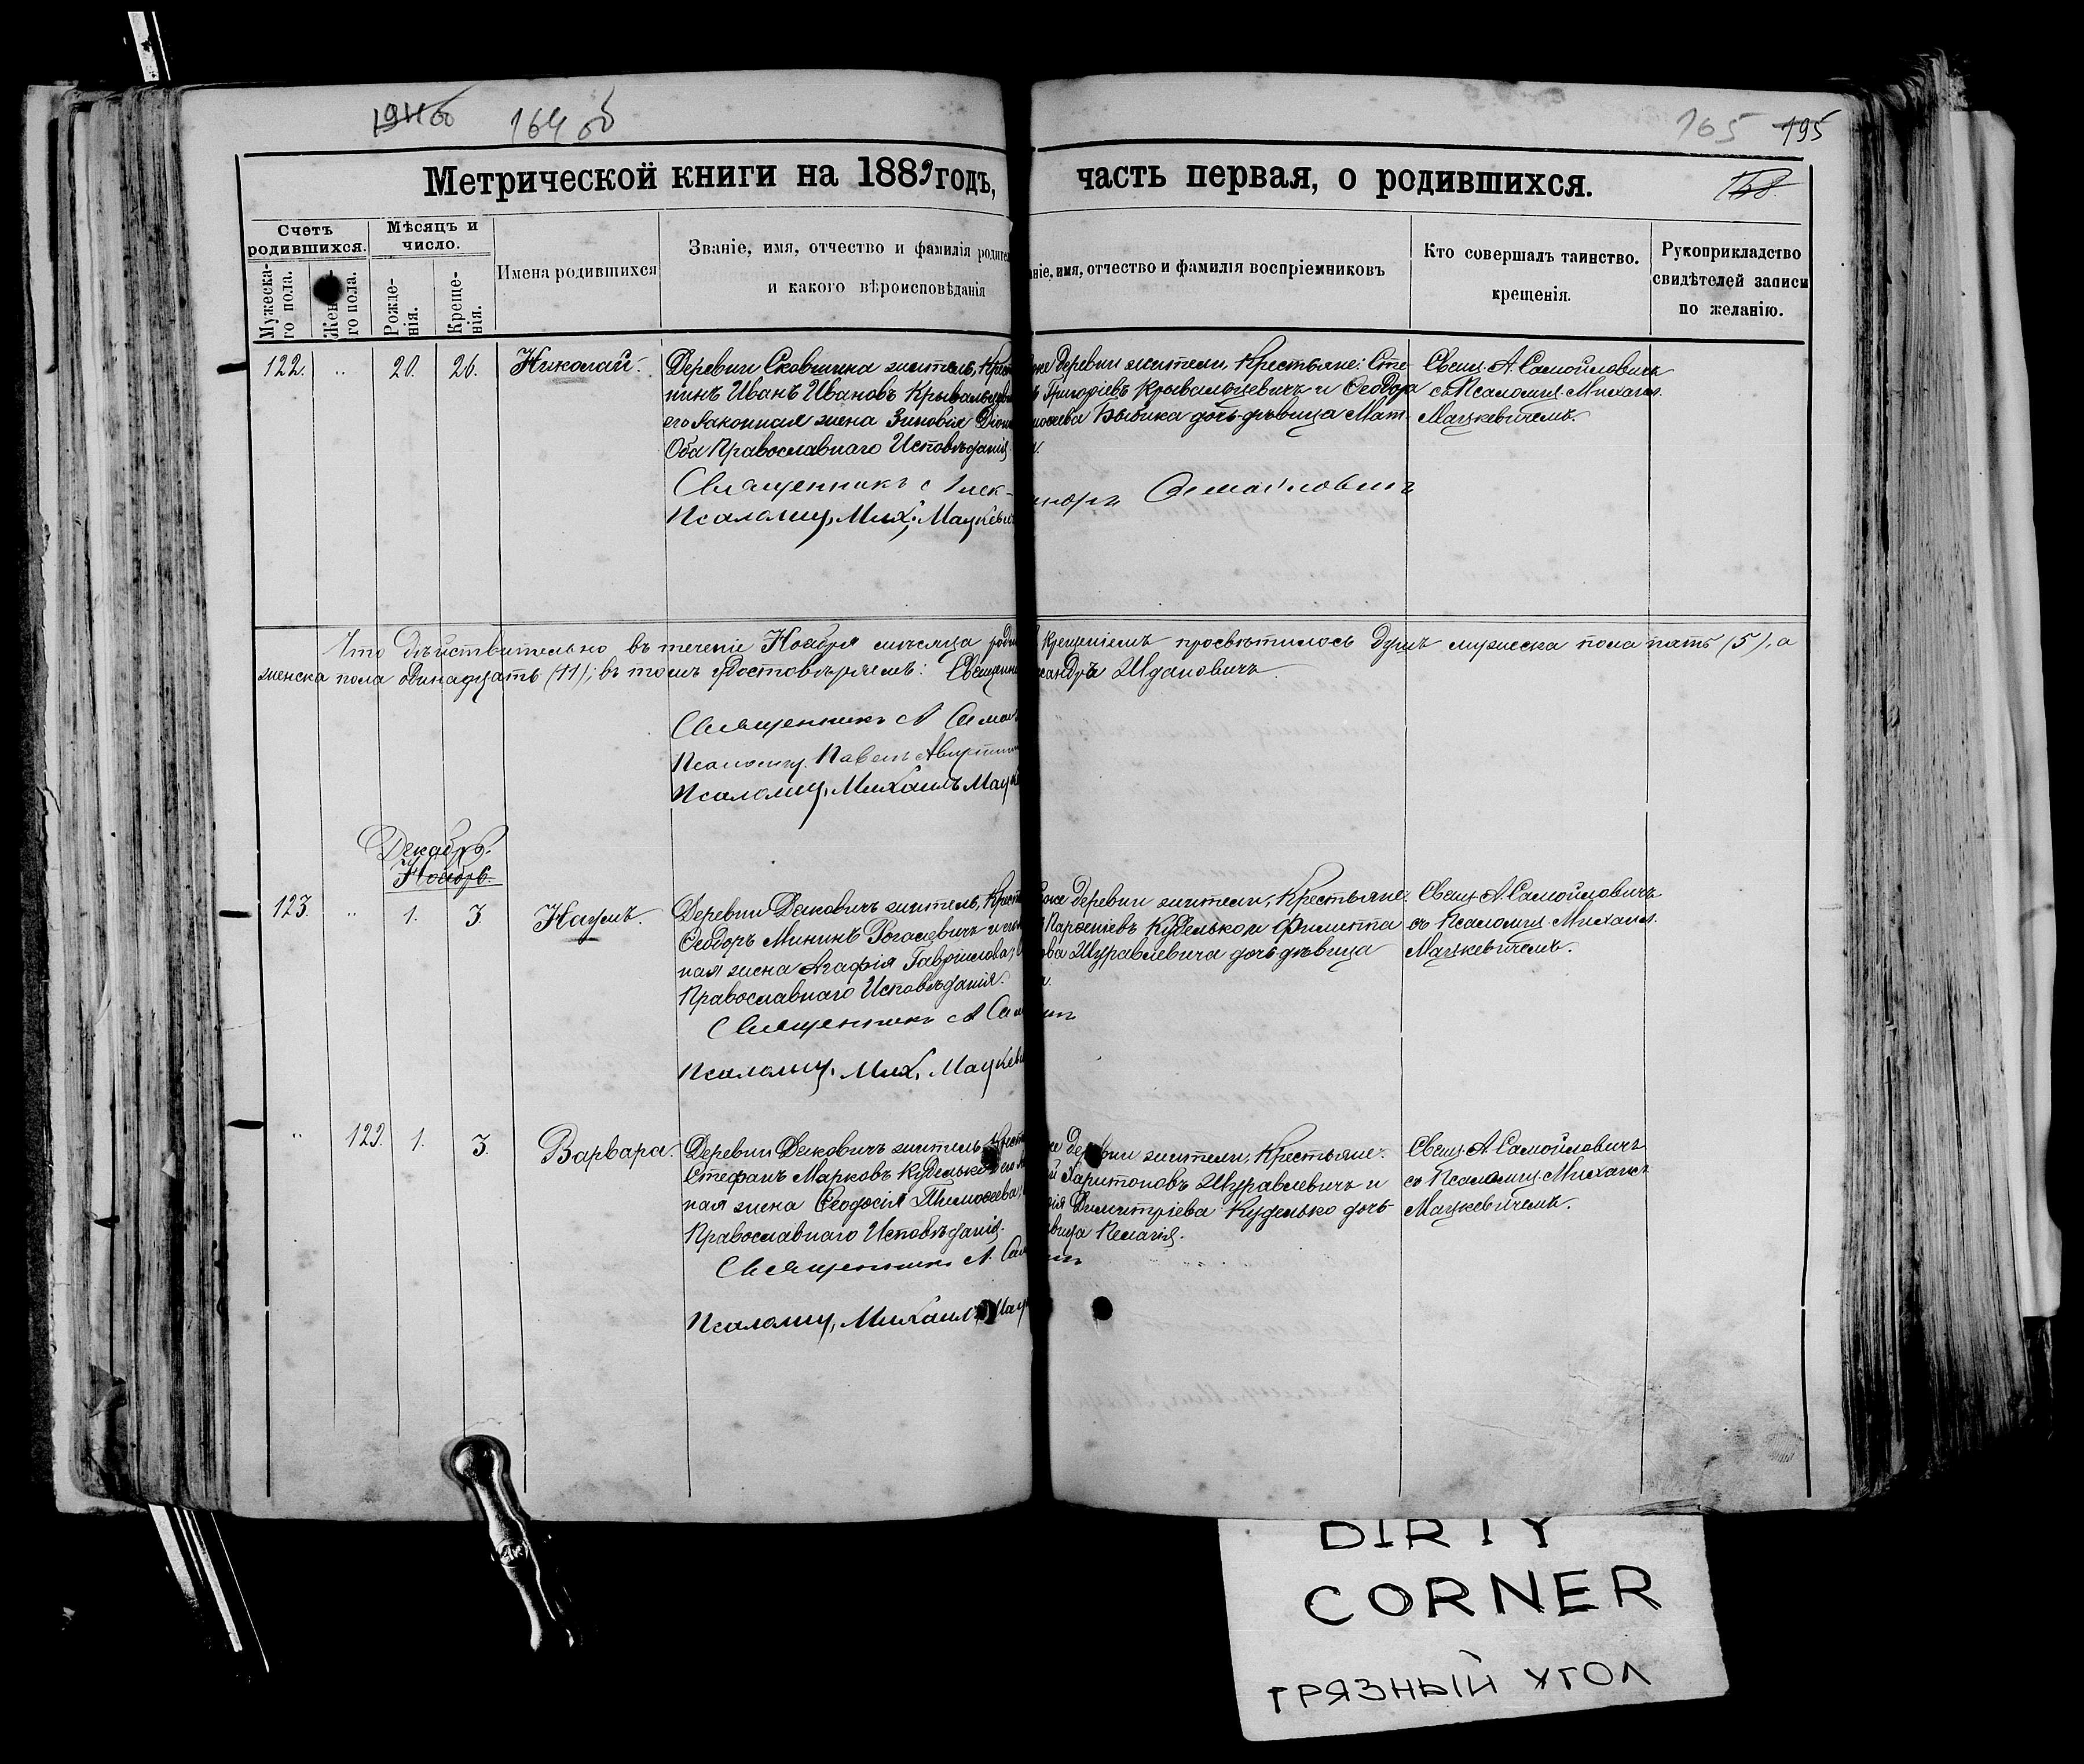 194об 164 об
165 195
Метрической книги на 1889 годъ, часть первая, о родившихся.
158.
Счетъ родившихся.
Мѣсяцъ и число.
Имена родившихся
Званіе, имя, отчество и фамилія родите
и какого вѣроисповѣданія
ніе, имя, отчество и фамилія воспріемниковъ
Кто совершалъ таинство.
крещенія.
Рукоприкладство
свидѣтелей записи
по желанію.
Мужеска-
го пола.
Жен
го пола.
Рожде-
нія.
Креще-
нія.
122. " 20. 26. Николай.
Деревни Сковшина житель, Крест
нинъ Иванъ Ивановъ Крывальцеви
его законная жена Зиновія Діони
Оба Православнаго Исповѣданія
Священникъ Алек-
Псаломщ. Мих. Мацкевич
оже деревни жители, Крестьяне: Сте-
Григоріевъ Крывальцевичъ и Ѳеодора
моѳеева Бывика дочь дѣвица Мат-
Свящ. А. Самойловичъ
съ Псаломщ. Михаил.
Мацкевичемъ.
Что дѣйствительно въ теченіе Ноября мѣсяца роди крещеніемъ просвѣтилось душъ мужеска пола пять (5), а
женска пола одинадцать (11); въ томъ удостовѣряемъ: Священни ксандръ Ждановичъ
Священникъ А Само
Псаломщ. Павелъ
Псаломщ. Михаилъ Мацк
Декабрь.
Ноябрь.
123. " 1. 3. Наумъ.
Деревни Дековичъ житель, Крест
Ѳеодоръ Мининъ Рогацевичъ и его
ная жена Агафія Гавріилова,
Православнаго Исповѣданія.
Священникъ А Сам
Псаломщ. Мих. Мацкеви
оже деревни жители, Крестьяне:
Парѳеніевъ Куделько и Филиппа
ова Журавлевича дочь дѣвица
Свящ. А. Самойловичъ
съ Псаломщ. Михаил.
Мацкевичемъ.
" 129. 1. 3. Варвара.
Деревни Дековичъ житель, Крест
Стефанъ Марковъ Куделько его
ная жена Ѳеодосія Тимоѳеева,
Православнаго Исповѣданія.
Священникъ А. Сам
Псаломщ. Михаилъ Мац
же деревни жители, Крестьяне:
й Харитоновъ Журавлевичъ и
рія Димитріева Куделько дочь
вица Пелагія.
Свящ. А. Самойловичъ
съ Псаломщ. Михаил
Мацкевичемъ.
DIRTY
CORNER
ГРЯЗНЫЙ УГОЛ